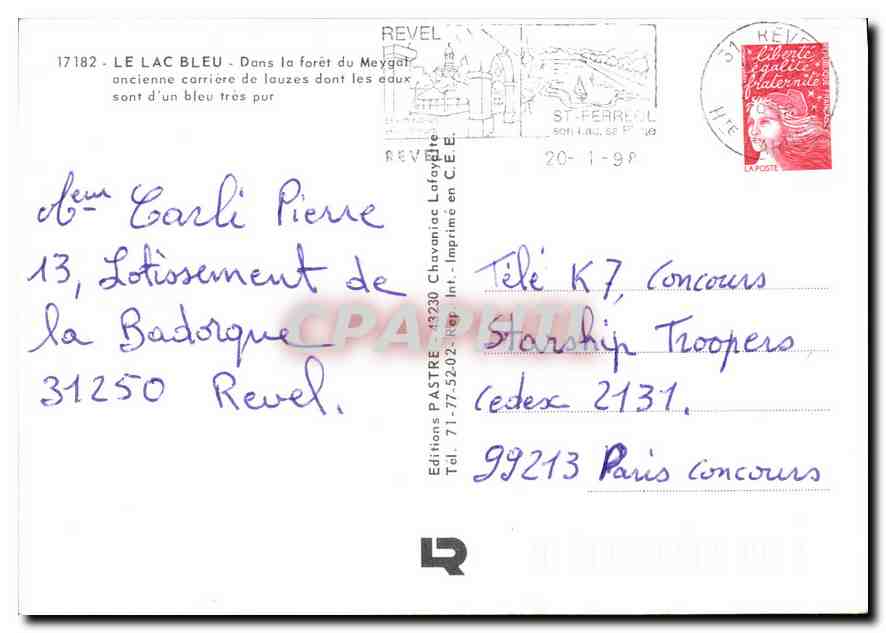 17182 - LE LAC BLEU - Dans la forêt du Meygal
ancienne carrière de lauzes dont les eaux
sont d'un bleu très pur
REVEL
ST-FERREOL
son Lac, sa
REVEL
20-1-98
31 REVEL
Hte
liberté
égalité
fraternité
LA POSTE
Carli Pierre
13, Lotissement de
la Badorque
31250 Revel.
Editions PASTRE - 43230 Chavaniac Lafayette
Tél. 71-77-52-02 - Rep. Int. - Imprimé en C.E.E.
Télé K7, Concours
Starship Troopers
Cedex 2131.
99213 Paris Concours
CPAPHIL